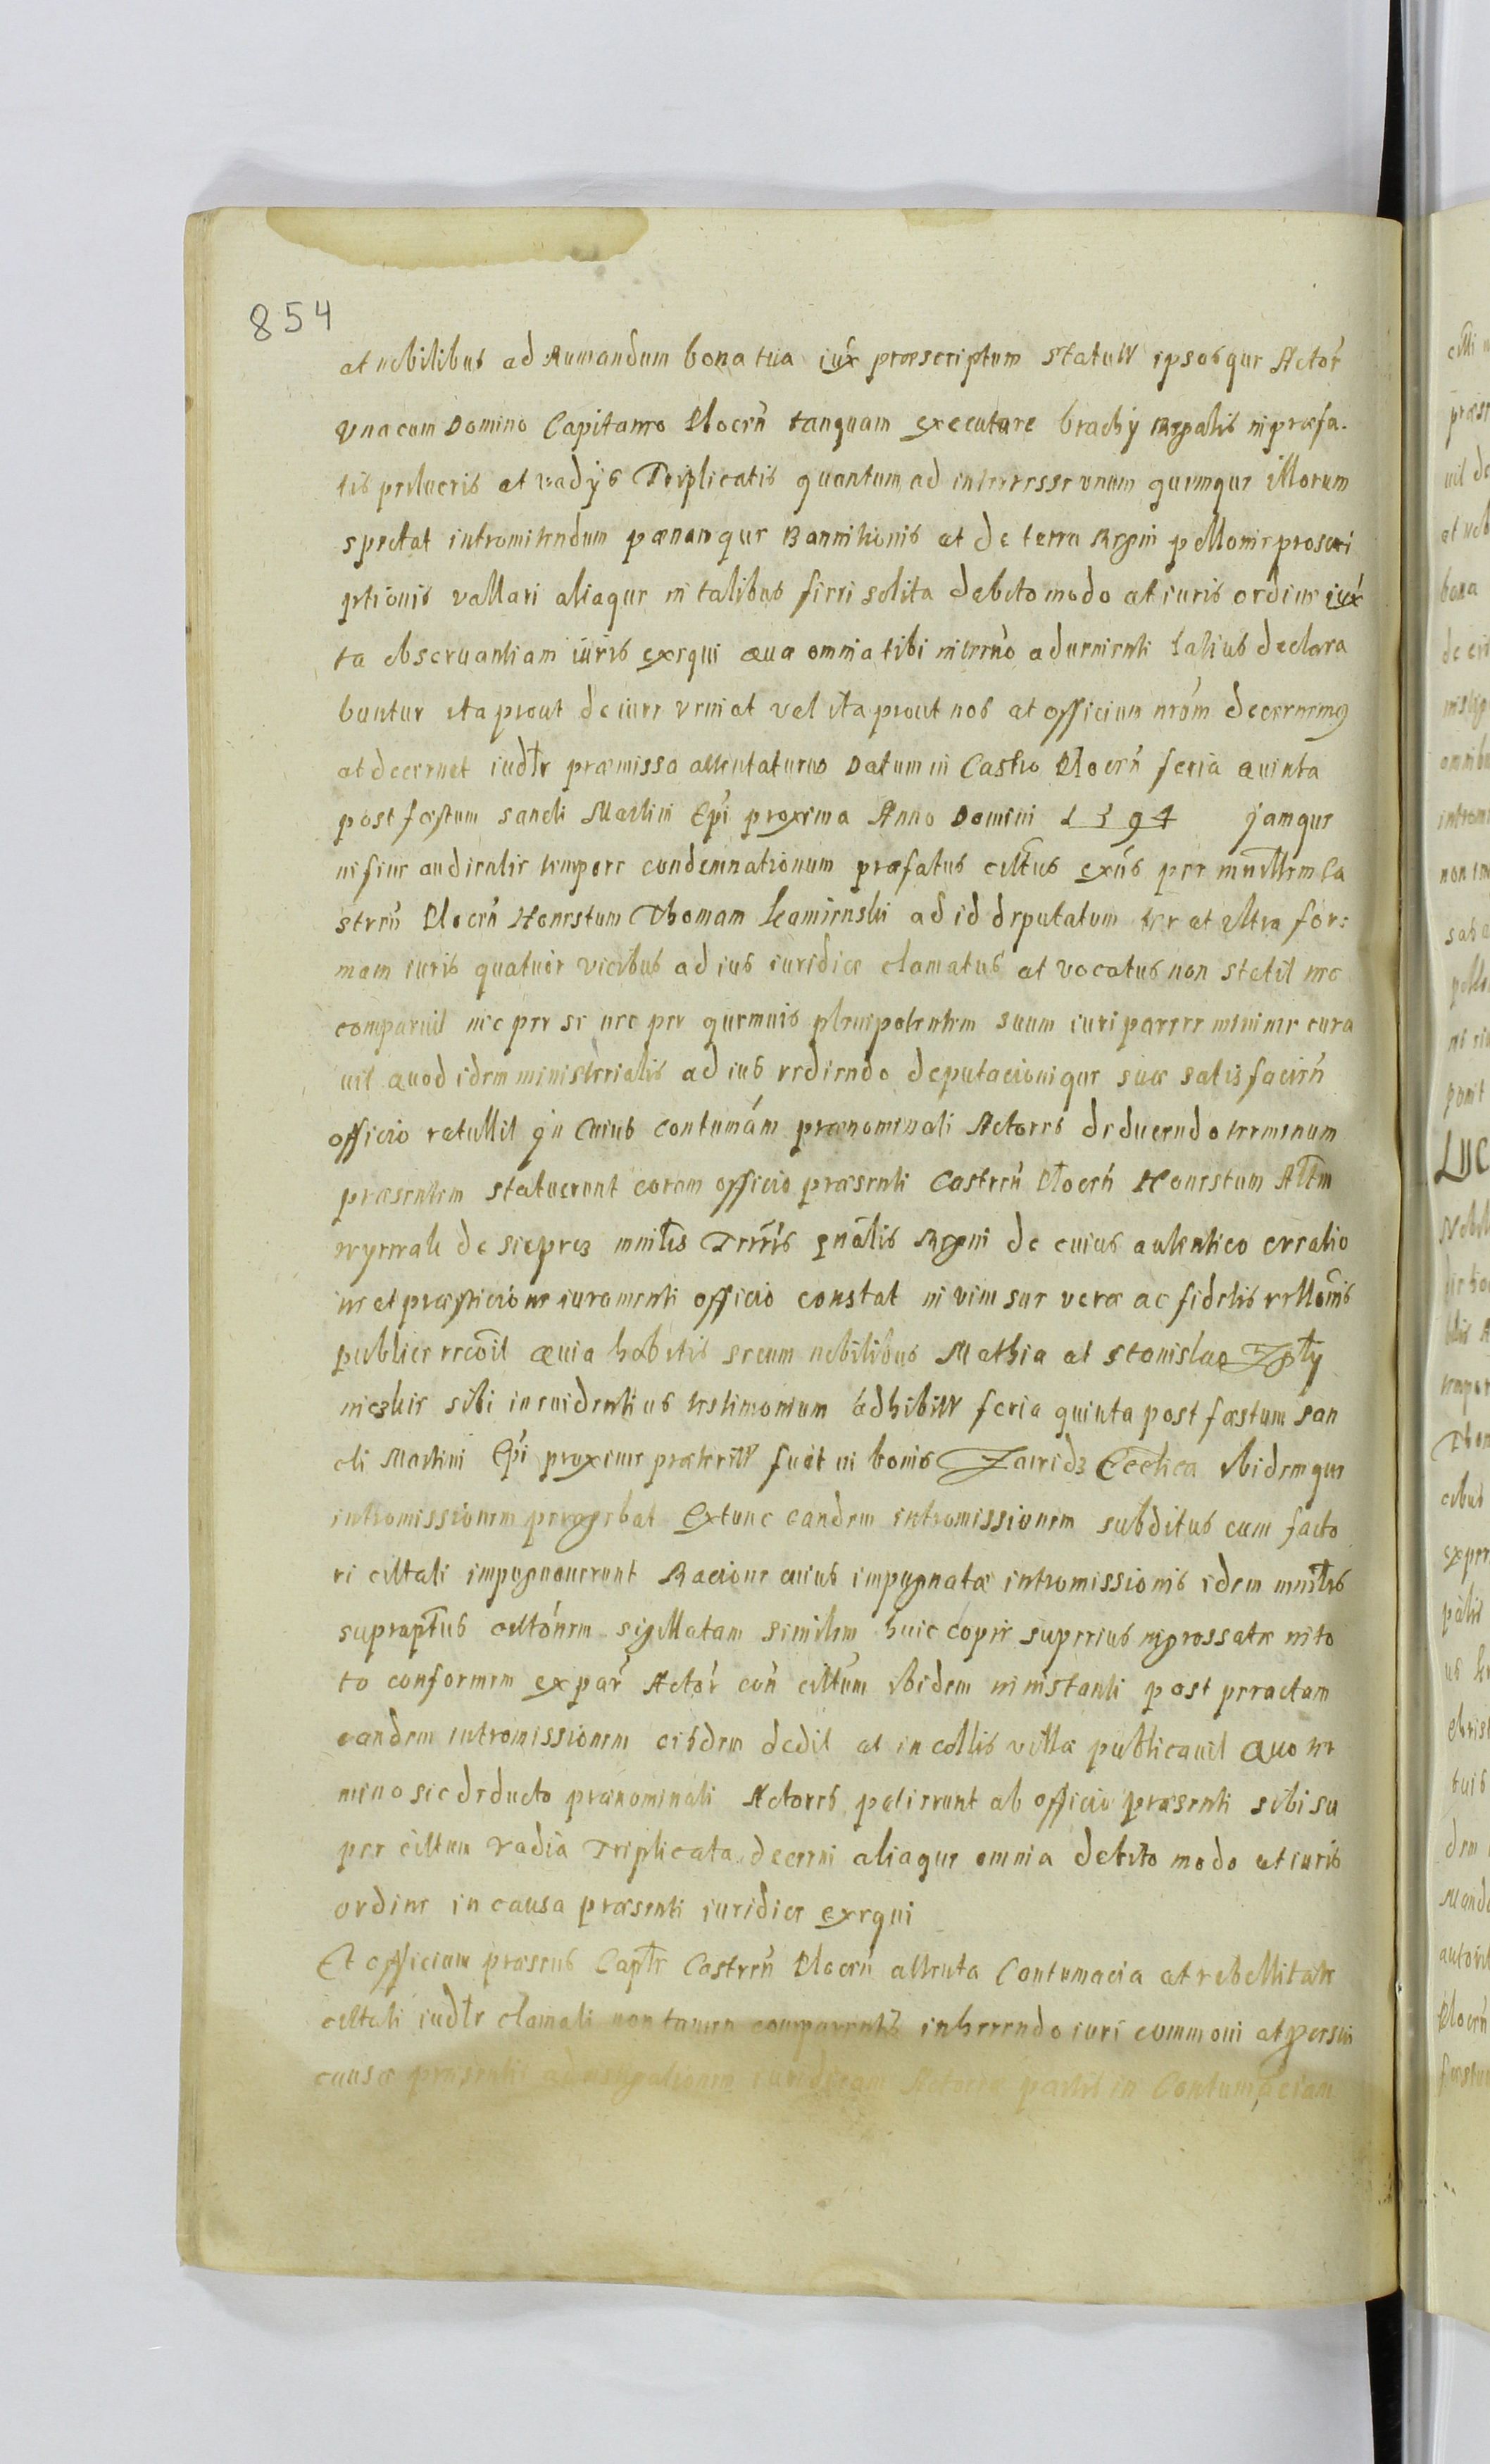 854
at nobilibus ad Rumandum bona tua iux̃ præscriptum Statuti ipsosque Actor̃
vnacum Domino Capitaneo Plocen̄ tanquam executore brachÿ Regalis in præfa-
tis pecuneis at vadÿs Triplicatis quantum ad interresse vnum quemque illorum
spectat intromitendum pœnamque Bannitionis at de terra Regni pollonie proscri
ptionis vallari aliaque in talibus fieri solita debito modo at iuris ordine iux̃
ta obseruantiam iuris exequi Quæ omnia tibi in termĩo aduenienti latius declara
buntur ita prout de iure veniat vel ita prout nos at officium nrõm decernemq
at decernet iudtr præmissa attentaturus Datum in Castro Plocen̄ feria Quinta
post fæstum sancti Martini Epĩ proxima Anno Domini 1594 jamque
in fine audientie tempore condemnationum præfatus cittus exñs per mnĩlem Ca
stren̄ Plocen̄ Honestum Thomam Kamienski ad id deputatum ter at vltra for:
mam iuris quatuor vicibus ad ius iuridice clamatus at vocatus non stetit nec
comparuit nec per se nec per quemuis plenipotentem suum iuri parere minime cura
uit Quod idem ministerialis ad ius redeundo deputacionique suæ satisfacien̄
officio retullit jn Cuius contumám prænominati Actores deducendo terminum
præsentem statuerunt coram officio præsenti Castren̄ Plocen̄ Honestum Altm
de sieprcz mnĩtis Terrĩs gnãlis Regni de cuius autentico creatio
ne at præsticione iuramenti officio constat in vim sue veræ ac fidelis rellõnis
publice recõit Quia habitis secum nobilibus Mathia at Stanislao
niczkie sibi in euidentius testimonium adhibitis feria quinta post fæstum san
cti Martini Epĩ proxime præteriti fuit in bonis Zawidz Ecclica ibidemque
intromissionem peragebat Extunc eandem intromissionem subditus cum facto
ri cittati impugnauerunt Racione cuius impugnatæ intromissionis idem mnĩtis
supraptus cittõnem sigillatam similem huic copie superius ingrossatæ in to
to conformem ex par̃ Actor̃ con̄ cittum ibidem in instanti post peractam
eandem intromissionem eisdem dedit at incollis villæ publicauit Quo ter
mino sic deducto prænominati Actores petierunt ab officio præsenti sibi su
per cittum vadia Triplicata decerni aliaque omnia debito modo at iuris
ordine in causa præsenti iuridice exequi
Et officium præsens Captr Castren̄ Plocen̄ attenta Contumacia at rebellitate
cittati iudtr clamati non tamen comparentis inherendo iuri communi at
causæ præsentis ad iuridicam Actoreæ partis in Contumaciam